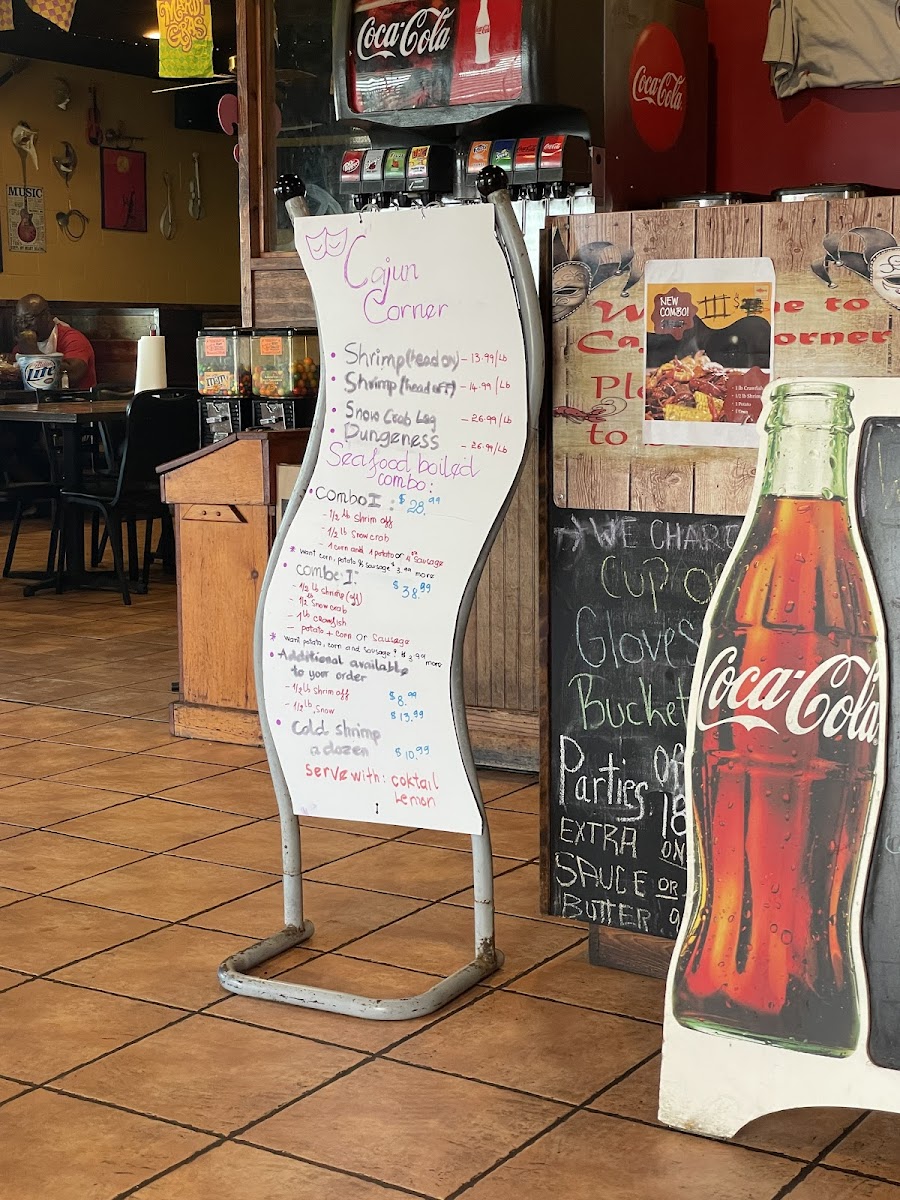 MARDI
GRAS
Coca-Cola
Coca-Cola
MUSIC
Lite
Cajun
Corner
• Shrimp (head on) - 13.99/Lb
• Shrimp (head off) - 14.99/Lb
• Snow Crab Leg - 26.99/Lb
• Dungeness - 26.99/Lb
Seafood boiled
combo:
• Combo I : $28.99
- 1/2 lb shrim off
- 1/2 lb Snow crab
- 1 corn and 1 potato or 4 sausage
* want corn, potato, & sausage $3.99 more
• combo I: $38.99
- 1/2 lb shrimp (off)
- 1/2 lb Snow crab
- 1 lb crawfish
- potato + corn or sausage
* want potato, corn and sausage? $3.99 more
• Additional available
to your order
- 1/2 lb shrim off $8.99
- 1/2 lb, snow $13.99
• Cold shrimp
a dozen $10.99
Serve with: coktail
Lemon
NEW
COMBO!
• 1 lb Crawfish
• 1/2 lb Shrimp
• 1 Potato
• 1 Corn
to
orner
to
WE CHAR
Cup of
Gloves
Bucket
Parties OF
18
EXTRA ON
SAUCE OR
BUTTER
Coca-Cola